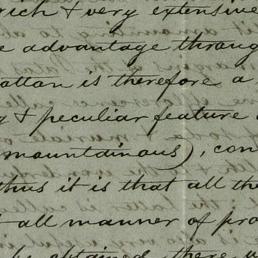 rich & very extensive
advantage throug
is therefore a
& peculiar feature
mountainous), con
thus it is that all the
all manner of pro
be obtained there